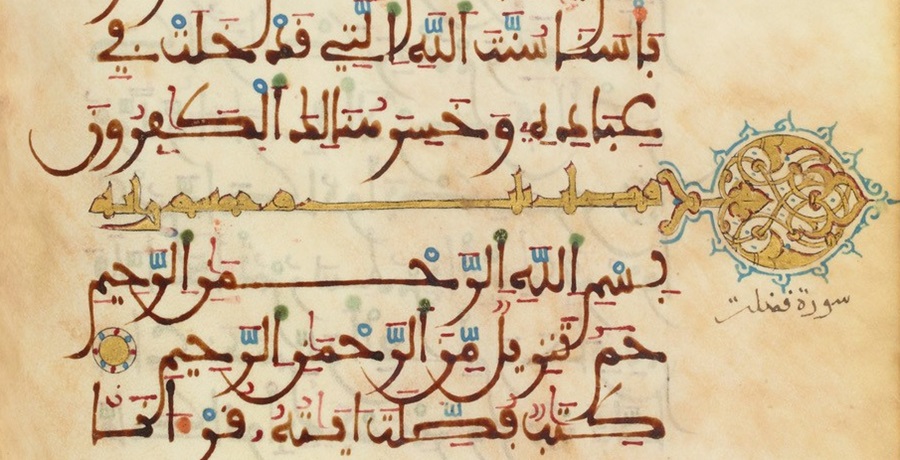 بأسنا سنت الله التي قد خلت في
عباده وخسر هنالك الكفرون
فصلت
بسم الله الرحمن الرحيم
سورة فصلت
حم تنزيل من الرحمن الرحيم
كتب فصلت ايته قرانا